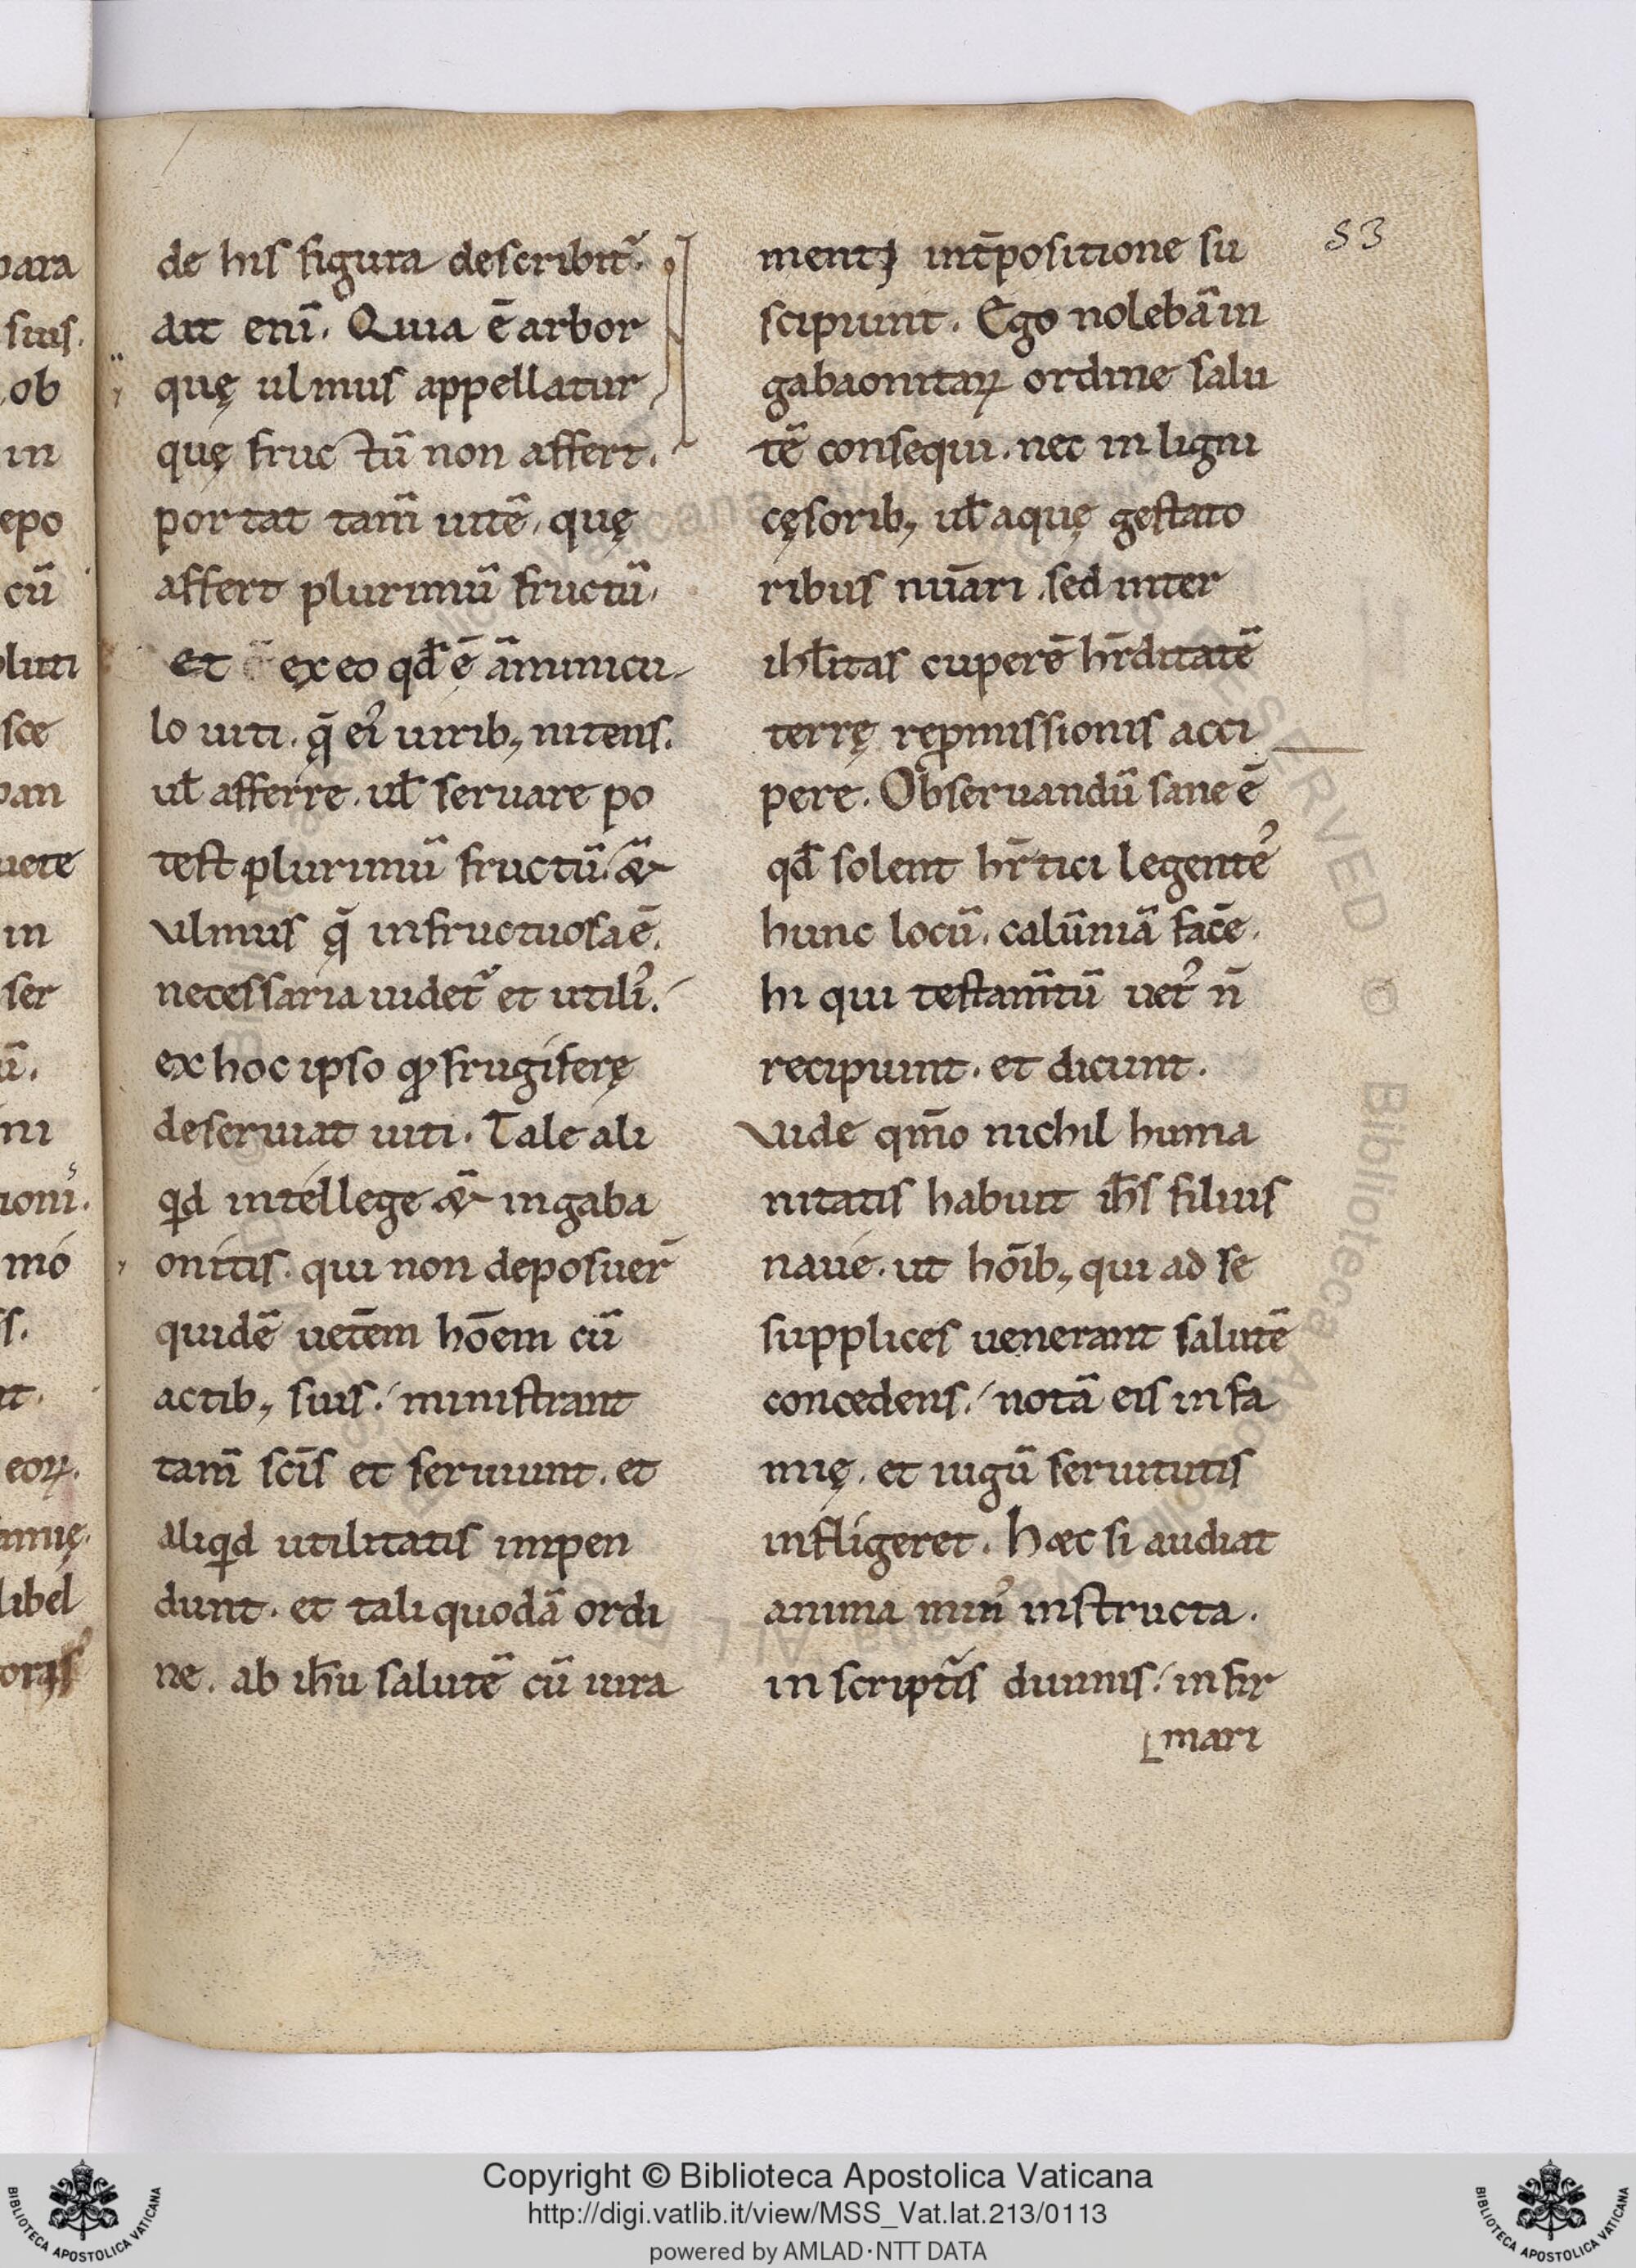 de his figura describit᷑.
ait eni᷑. Quia ē arbor
quę ulmus appellatur
quę fructū non affert.
portat tam̄ uitē, quę
affert plurimū fructū.
et ex eo qđ ē āminicu-
lo uiti. q̄ ei᷒ uirib; nitens.
ul̄ afferre. ul̄ seruare po
test plurimū fructū. &
vlmus q̄ infructuosa ē.
necessaria uidet᷑ et utili᷒.
ex hoc ipso ꝙ frugiferę
deseruiat uiti. Tale ali
qid intellege & in gaba
onitis. qui non deposuer̄
quidē uetēm hōem cū
actib; suis. ministrant
tam̄ scīs et seruiunt. et
aliqid utilitatis impen
dunt. et tali quodā ordi
ne. ab ih̄u salutē cū iura
mentj int̄positione su
scipiunt. Ego nolebā in
gabaonitaꝝ ordine salu
tē consequi. nec in ligni
cęsorib; ul̄ aquę gestato
ribus nūari. sed inter
ihl̄itas cuperē hr̄ditatē
terrę repmissionis acci
pere. Obseruandū sane ē
qđ solent hr̄tici legente᷒
hunc locū. calūniā facē.
hi qui testam̄tū uet᷒ n̄
recipiunt. et dicunt.
vide qm̄o nichil huma
nitatis habuit ih̄s filius
naue. ut hōib; qui ad se
supplices uenerant salutē
concedens. notā eis infa
mię. et iugū seruitutis
infligeret. Hæc si audiat
anima min᷒ instructa.
in scriptis diuinis. infir
mari
53
para
suis.
ob
in
epo
cū
luti
sce
pan
uete
in
ser
ū.
ni
ioni᷒.
mo
s.
nt.
eoꝝ.
amię.
libel
Copyright © Biblioteca Apostolica Vaticana
http://digi.vatlib.it/view/MSS_Vat.lat.213/0113
powered by AMLAD·NTT DATA
BIBLIOTECA APOSTOLICA VATICANA
BIBLIOTECA APOSTOLICA VATICANA